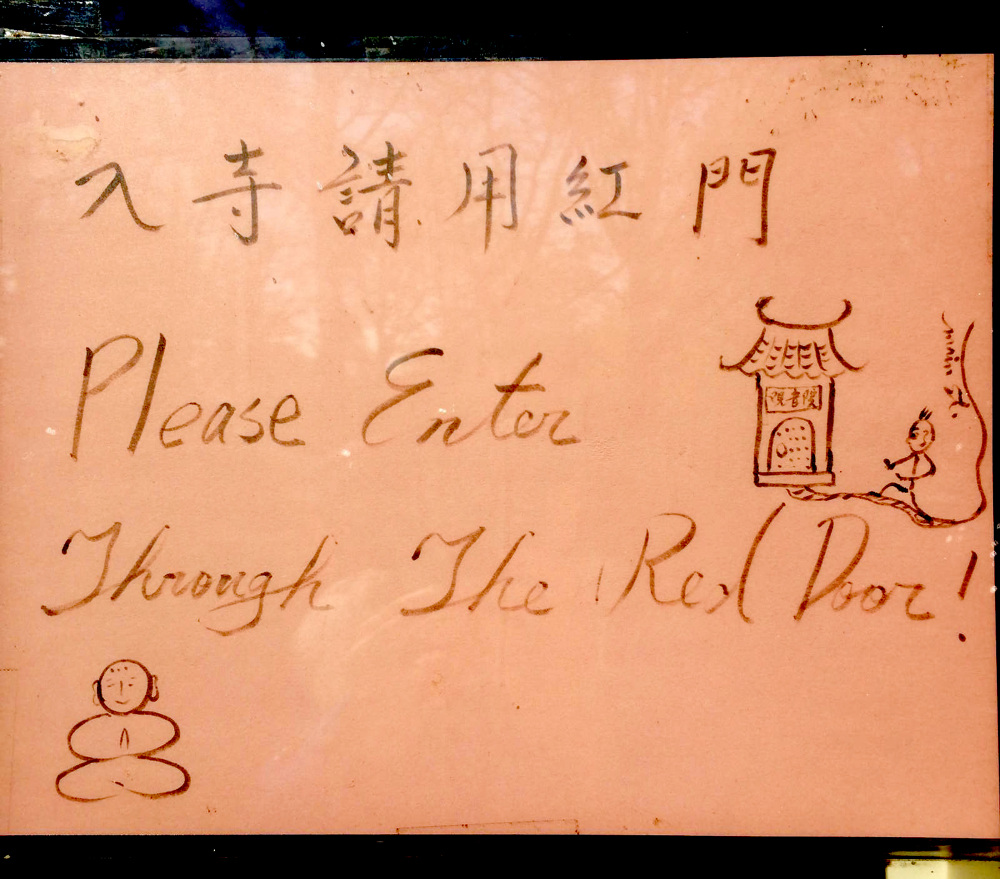 入寺請用紅門
Please Enter
main st.
Through The Red Door!